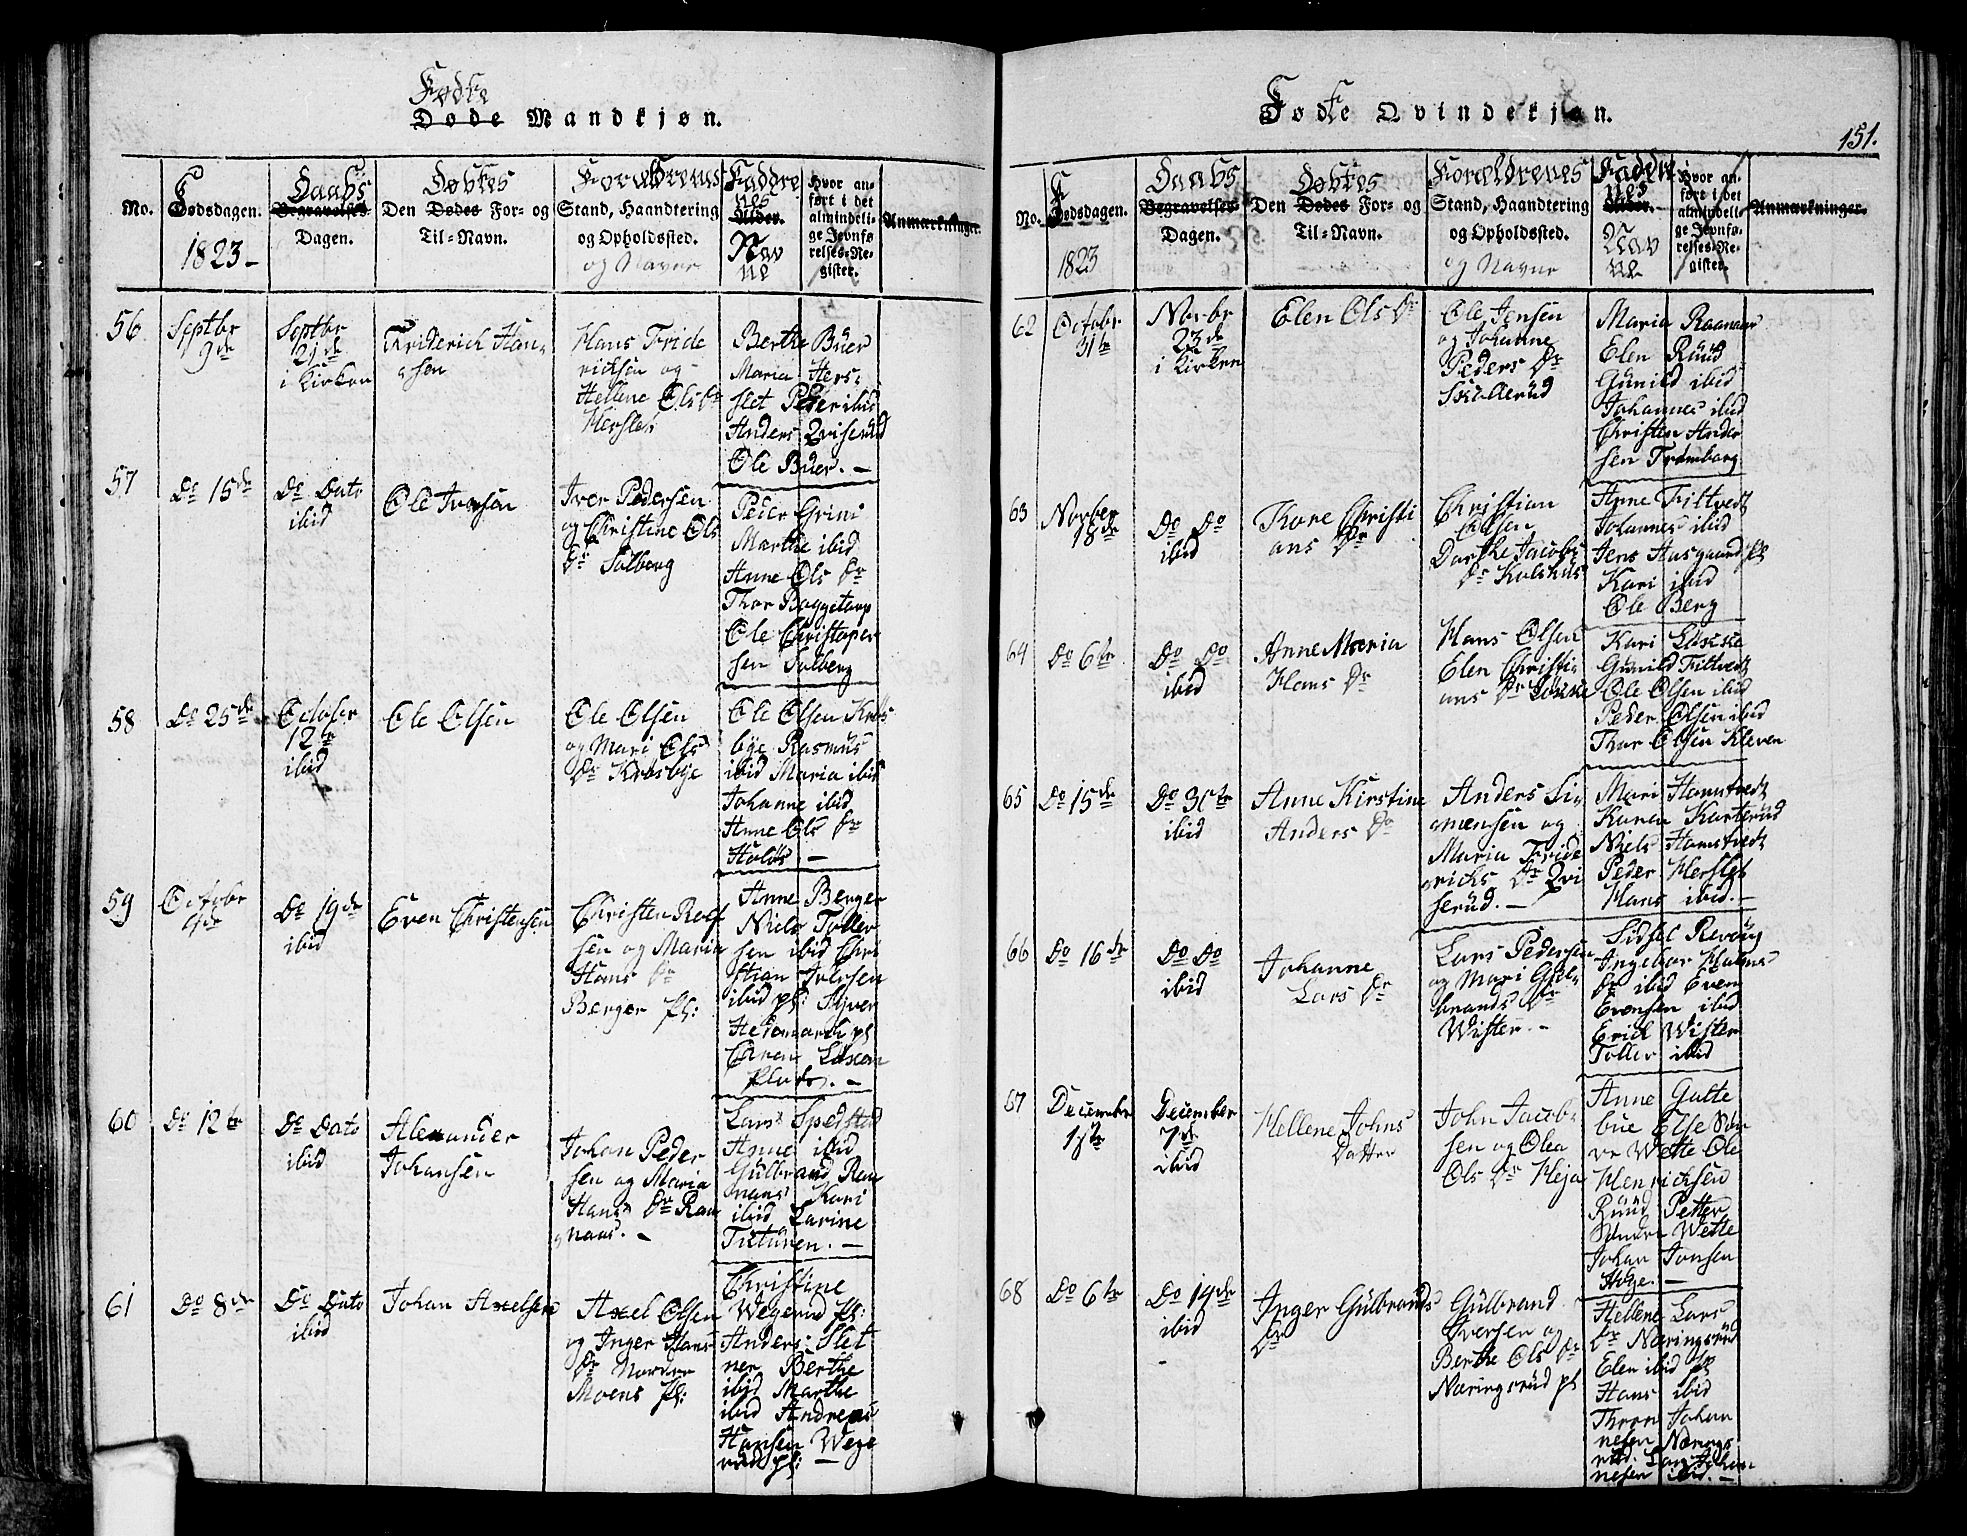 Fødte
Døde Mandkjøn.
No.
Fødsdagen.
1823-
Daabs
Begravelses
Dagen.
Døbtes
Den Dødes For- og
Til-Navn.
Forældrenes
Stand, Haandtering
og Opholdssted.
og Navne
Faddre
nes
Alder.
Nav
ne
Hvor an-
ført i det
almindeli-
ge Jevnfø-
relses-Re-
gister.
Anmærkninger.
56
Septbr
9de
Septbr
21de
i Kirken
Friderich Han-
sen
Hans Fride
richsen og
Hellene Ols Dr
Hersleb
Berthe Buer
Maria Hers-
slet Peder ibid
Anders Qviserud
Ole Buer. -
57
Do 15de
Do Dato
ibid
Ole Iversen
Iver Pedersen
og Christine Ols
Dr Solberg
Peder Grini
Marthe ibid
Anne Ols Dr
Thor Baggetorp
Ole Christopher
sen Solberg
58
Do 25de
October
12te
ibid
Ole Olsen
Ole Olsen
og Mari Ols
Dr Krosbye
Ole Olsen Kros
bye Rasmus
ibid Maria ibid
Johanne ibid
Anne Ols Dr
Holøs -
59
Octobr
4de
Do 19de
ibid
Even Christensen
Christen Rolf
sen og Maria
Hans Dr
Berger pl:
Anne Berger
Niels Toller
sen ibid Chri
stian Iversen
ibid pl: Syver
Hedemark pl
60
Do 12te
Do Dato
ibid
Alexander
Johansen
Johan Peder
sen og Maria
Hans Dr Raa
naas. -
Lars Spedstad
Anne ibid
Gulbrand Raa
naas Kari
ibid Karine
61
Do 8de
Do Dato
ibid
Johan Axelsen
Axel Olsen
og Inger Hans
Dr Nordre
Moens pl:
Christine
Wegerud pl:
Anders Slet
ner Berthe
ibid Marthe
ibid Andreas
Hansen Wege
rud pl:
Fødte Qvindekjøn.
151.
No.
Fødsdagen.
1823
Daabs
Begravelses
Dagen.
Døbtes
Den Dødes For- og
Til-Navn.
Forældrenes
Stand, Haandtering
og Opholdssted.
og Navne
Faddre
nes
Alder.
Nav
ne
Hvor an-
ført i det
almindeli-
ge Jevnfø-
relses-Re-
gister.
Anmærkninger.
62
Octobr
31te
Novbr
23de
i Kirken
Elen Ols Dr
Ole Jensen
og Johanne
Peders Dr
Skollerud
Maria Raanaas
Elen Ruud
Gunild ibid
Johannes ibid
Christen Ander
sen Tromborg
63
Novber
18de
Do Do
ibid
Kore Christi
ans Dr
Christian
Olsen
Dorthe Jacobs
Dr Kolshus
Anne Tiltvedt
Johannes ibid
Jens Husgaard pl
Kari ibid
Ole Berg
64
Do 6te
Do Do
ibid
Anne Maria
Hans Dr
Hans Olsen
Elen Christi
ans Dr Løkke
Kari Løkke
Gunild Tiltvedt
Ole Olsen ibid
Peder Olsen ibid
Thor Olsen Kleven
65
Do 15de
Do 30te
ibid
Anne Kirstine
Anders Dr
Anders Si-
mensen og
Maria Fride
richs Dr Qvi
serud. -
Mari Hamstvedt
Karen Karterud
Niels Hamstvedt
Peder Herslet
Hans ibid. -
66
Do 16te
Do Do
ibid
Johanne
Lars Dr
Lars Pedersen
og Mari Gul-
brands Dr
Wister. -
Sidsel Revoug
Ingebor Halvors
Dr ibid Even
Evensen ibid
Erich Wister
Toller ibid
67
December
1ste
December
7de
ibid
Hellene Johns
Datter
John Jacob-
sen og Olea
Ols Dr Heja
Anne Gutte
bue Else Søn
re Wette Ole
Henrichsen
Ruud Petter
Søndre Wette
Johan Jonsen
68
Do 6te
Do 14de
ibid
Inger Gulbrands
Dr
Gulbrand
Iversen og
Berthe Ols Dr
Næringsrud pl
Hellene Lars
Dr Næringsrud
Elen ibid pl
Hans ibid
Thron Johan
nesen Nærings
rud. Lars Johan
nesen ibid. -